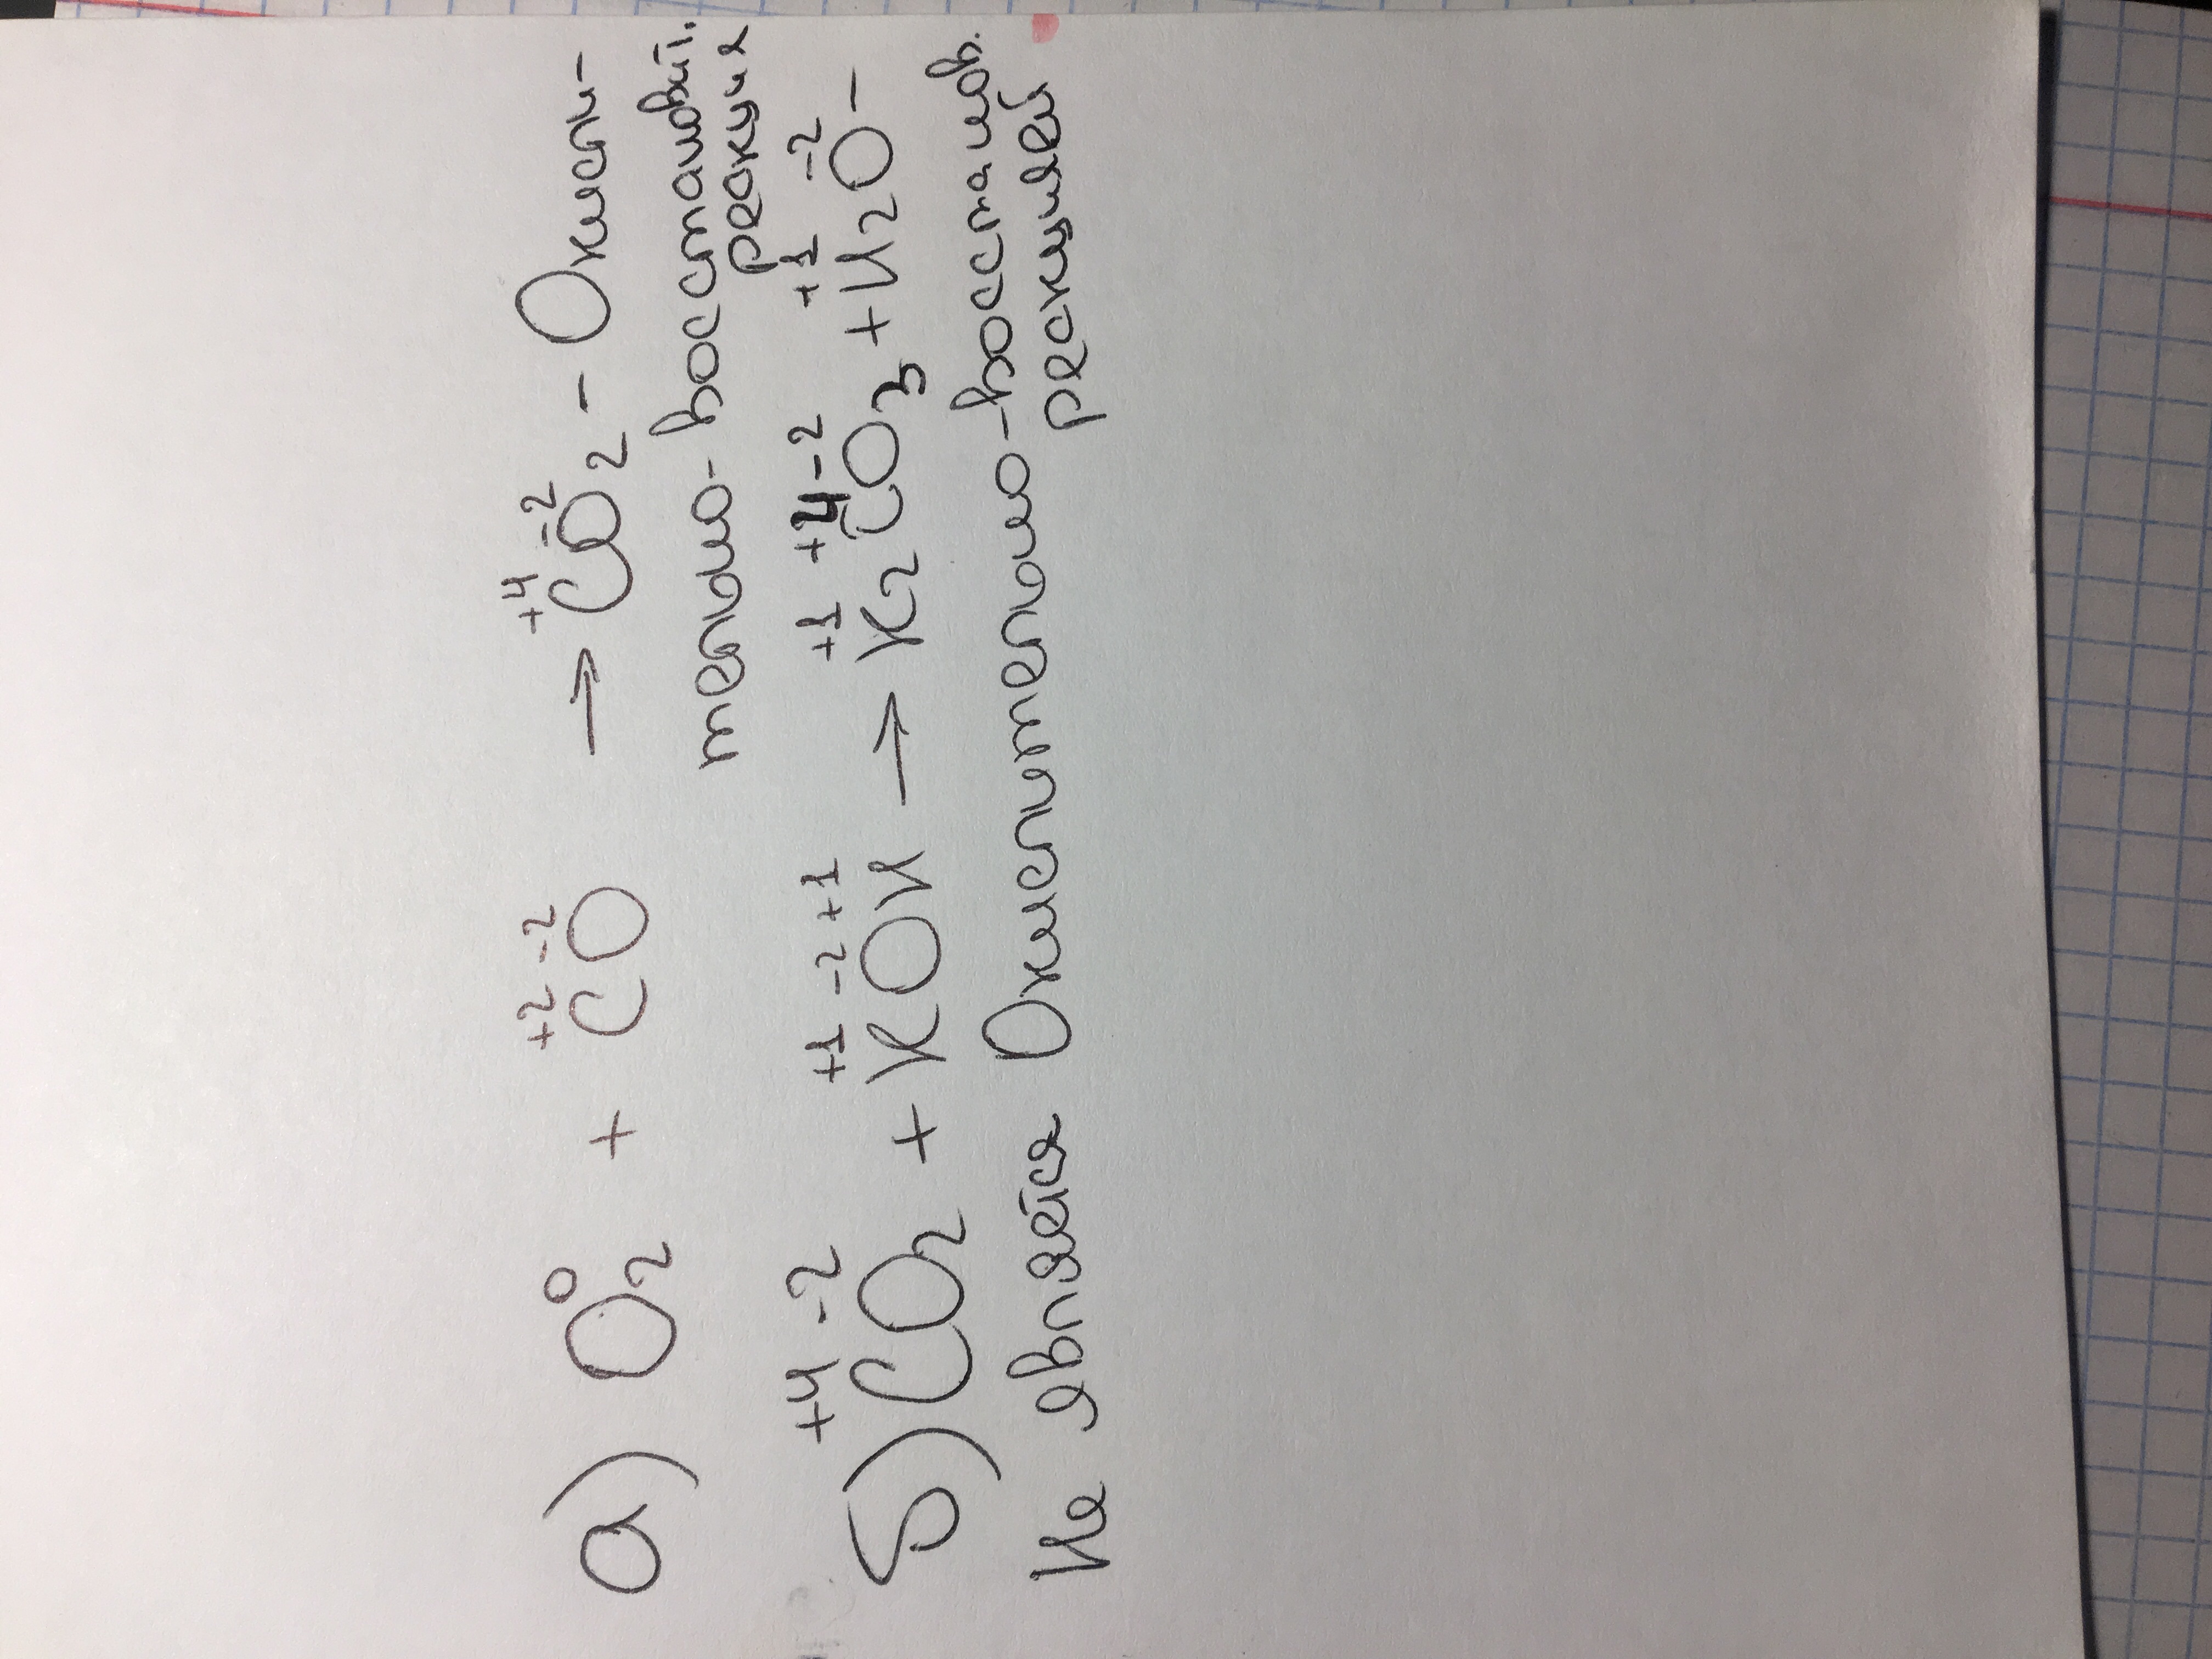 а) O₂⁰ + C⁺²O⁻² → C⁺⁴O⁻²₂ – Окисли-
тельно-восстановит.
реакция
б) C⁺⁴O⁻²₂ + K⁺¹O⁻²H⁺¹ → K⁺¹₂C⁺⁴O⁻²₃ + H⁺¹₂O⁻² –
Не является Окислительно-восстанов.
реакцией